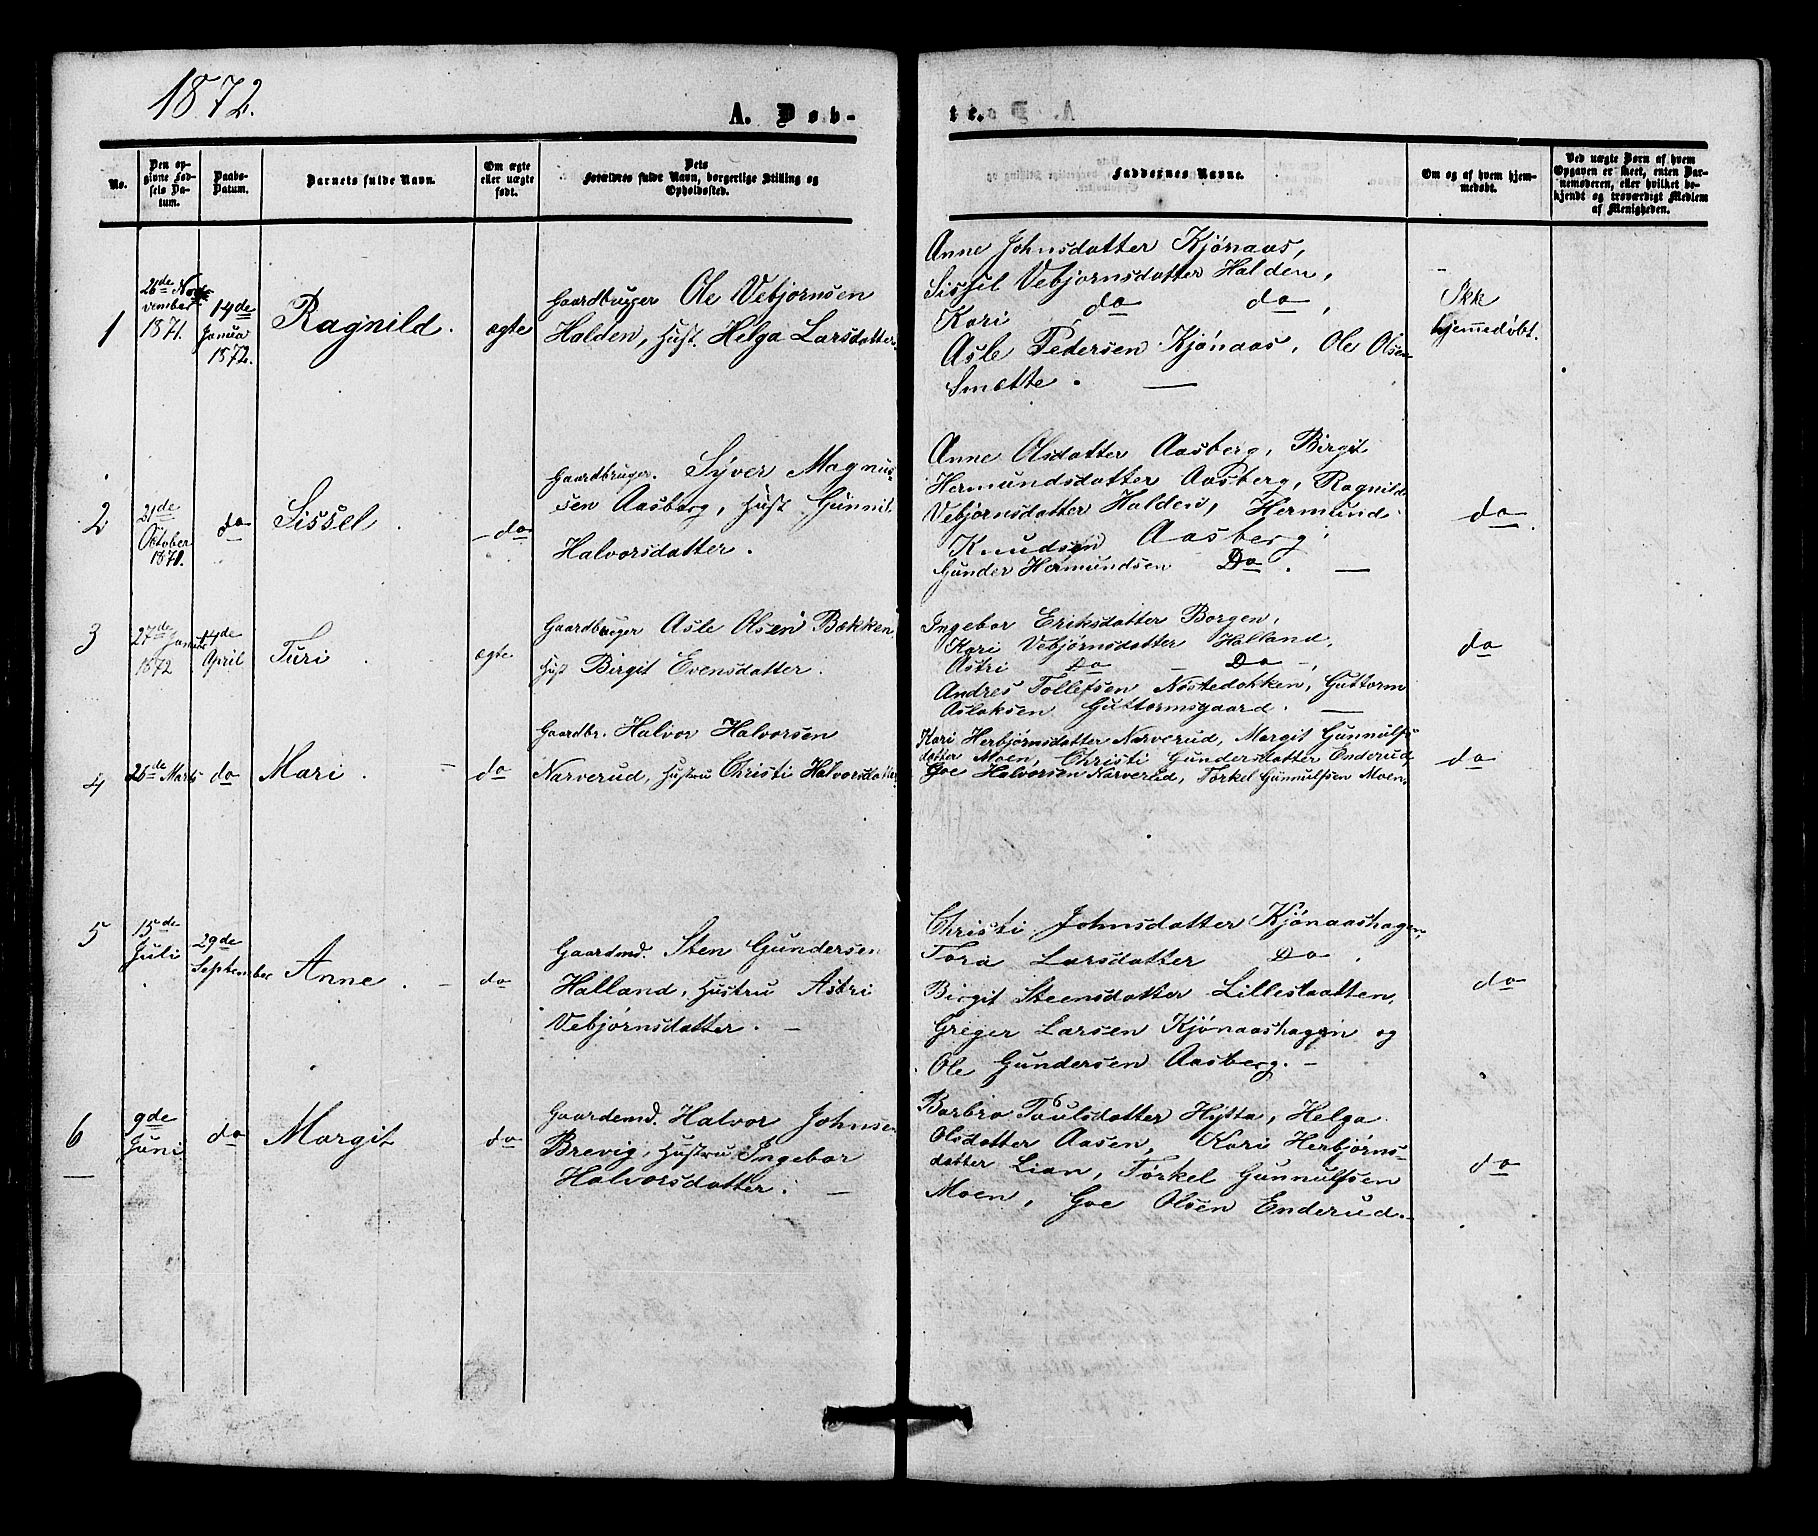 1872.
A. Døb-
te.
No.
Den op-
givne Fød-
sels Da-
tum.
Daabs-
Datum.
Barnets fulde Navn.
Om ægte
eller uægte
født.
Dets
Forældres fulde Navn, borgerlige Stilling og
Opholdssted.
Faddernes Navne.
Om og af hvem hjem-
medøbt.
Ved uægte Børn af hvem
Opgaven er skeet, enten Bar-
nemoderen, eller hvilket be-
kjendt og troværdigt Medlem
af Menigheden.
1
26de No-
vember
1871.
14de
Januar
1872.
Ragnild.
ægte
Gaardbruger Ole Vebjørnsen
Halden, Hust. Helga Larsdatter.
Anne Johnsdatter Kjønaas,
Sissel Vebjørnsdatter Halden,
Kari do do,
Asle Pedersen Kjønaas, Ole Olsen
Smætte. —
Ikk
hjemmedøbt.
2
21de
October
1871.
do
Sissel
do
Gaardbruger. Syver Magnus-
sen Aasberg, Hust Gunnil
Halvorsdatter.
Anne Olsdatter Aasberg, Birgit
Hermundsdatter Aasberg, Ragnild
Vebjørnsdatter Halden, Hermund
Knudsen Aasberg,
Gunder Hermundsen Do. —
do
3
27de Januar
1872
14de
April
Turi
ægte
Gaardbruger Asle Olsen Bækken,
Hust Birgit Evensdatter.
Ingebor Eriksdatter Borgen,
Kari Vebjørnsdatter Halland,
Astri Do — Do —,
Andres Tollefsen Nøstedokken, Guttorm
Aslaksen Guttormsgaard. —
do
4
26de Marts
do
Mari.
do
Gaardbr. Halvor Halvorsen
Narverud, Hustru Christi Halvorsdatter
Kari Herbjørnsdatter Narverud, Margit Gunnulfs-
datter Moen, Christi Gundersdatter Enderud,
Goe Halvorsen Narverud, Torkel Gunnulfsen Moen.
do
5
15de
Juli
29de
September
Anne.
do
Gaardmd. Sten Gundersen
Halland, Hustru Astri
Vebjørnsdatter. —
Christi Johnsdatter Kjønaashagen,
Tora Larsdatter Do,
Birgit Steensdatter Lilleslaatten,
Greger Larsen Kjønaashagen og
Ole Gundersen Aasberg. —
do
6
9de
Juni
do
Margit
do
Gaardemd. Halvor Johnsen
Brevig, Hustru Ingebor
Halvorsdatter. —
Barbro Paulsdatter Hytta, Helga
Olsdatter Aasen, Kari Herbjørns-
datter Lian, Torkel Gunnulfsen
Moen, Goe Olsen Enderud. —
do